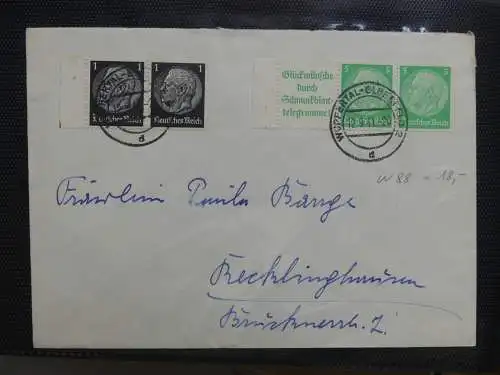 1 1
Deutsches Reich Deutsches Reich
Glückwünsche
durch
Schmuckblatt-
telegramme
5 5
Deutsches Reich
WUPPERTAL-ELBERFELD 2
d
d
W 88 = 18,-
Fräulein Paula Bange
Recklinghausen
Brucknerstr. 2